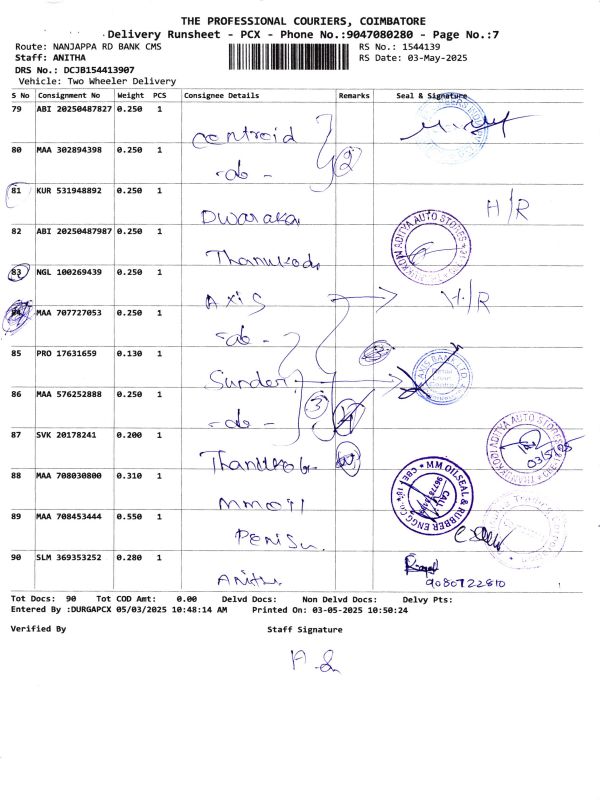 THE PROFESSIONAL COURIERS, COIMBATORE
Delivery Runsheet - PCX - Phone No.:9047080280 - Page No.:7
Route: NANJAPPA RD BANK CMS
RS No.: 1544139
Staff: ANITHA
RS Date: 03-May-2025
DRS No.: DCJB154413907
Vehicle: Two Wheeler Delivery
S No Consignment No Weight PCS Consignee Details Remarks Seal & Signature
79 ABI 20250487827 0.250 1
Centroid
80 MAA 302894398 0.250 1
-do- 2
81 KUR 531948892 0.250 1
Dwaraka H/R
82 ABI 20250487987 0.250 1
THANUKKODI ADITYA AUTO STORES
83 NGL 100269439 0.250 1
Axis H/R
84 MAA 707727053 0.250 1
-do-
85 PRO 17631659 0.130 1
Sunder
AXIS BANK LTD.
86 MAA 576252888 0.250 1
-do- 3 4
87 SVK 20178241 0.200 1
THANUKKODI ADITYA AUTO STORES
03/5/25
88 MAA 708030800 0.310 1
MM Oil
MM OILSEAL & RUBBER ENGG CO
CALL
89 MAA 708453444 0.550 1
90 SLM 369353252 0.280 1
Anitha
9080722810
Tot Docs: 90 Tot COD Amt: 0.00 Delvd Docs: Non Delvd Docs: Delvy Pts:
Entered By :DURGAPCX 05/03/2025 10:48:14 AM Printed On: 03-05-2025 10:50:24
Verified By Staff Signature